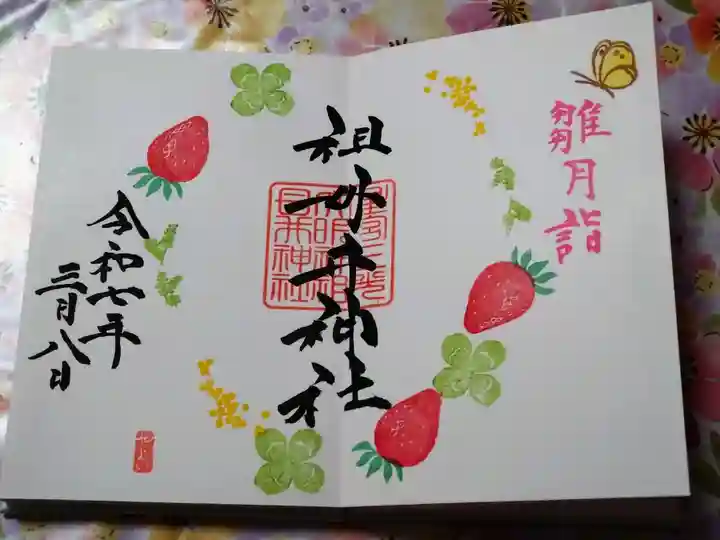 雛月詣
祖母井神社
令和七年
三月八日
やよい